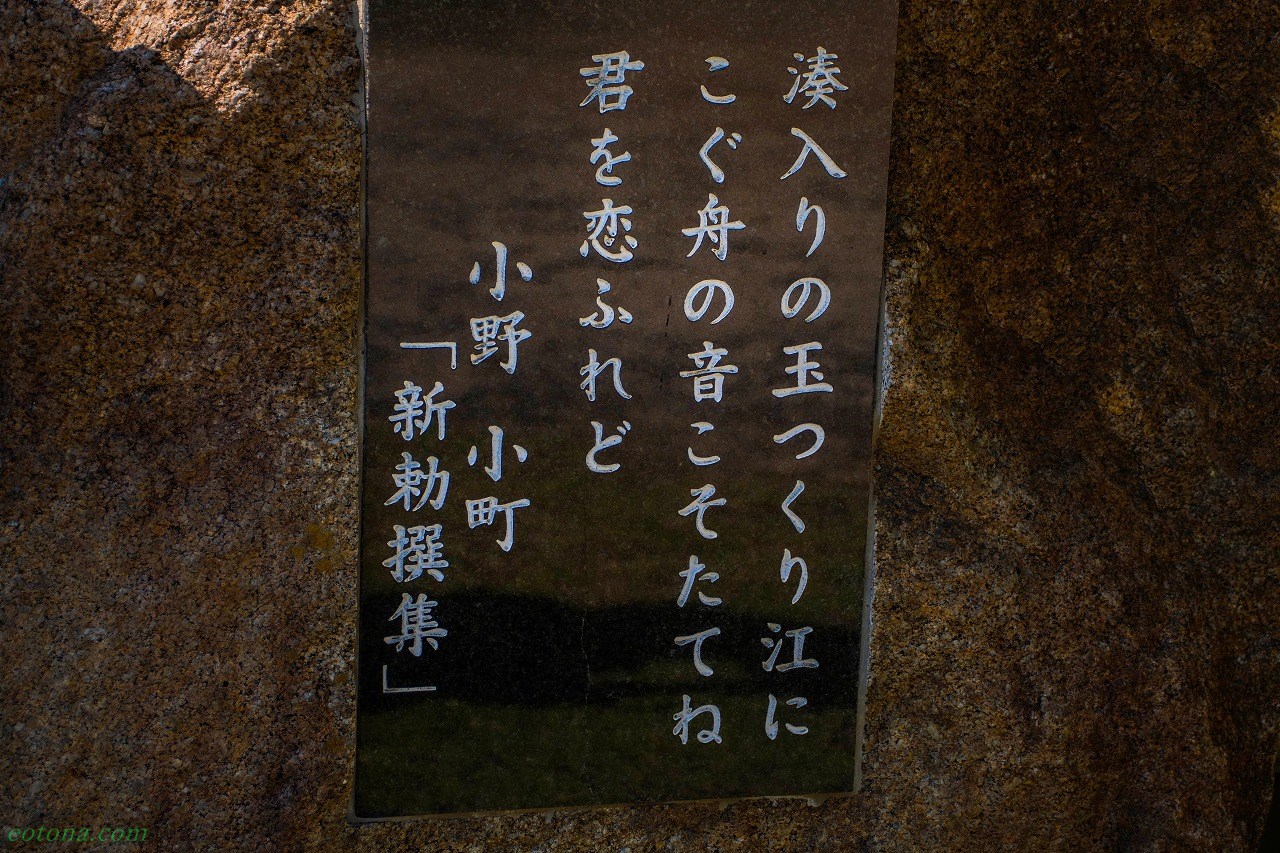 湊入りの玉つくり江に
こぐ舟の音こそたてね
君を恋ふれど
小野 小町
「新勅撰集」
eotona.com